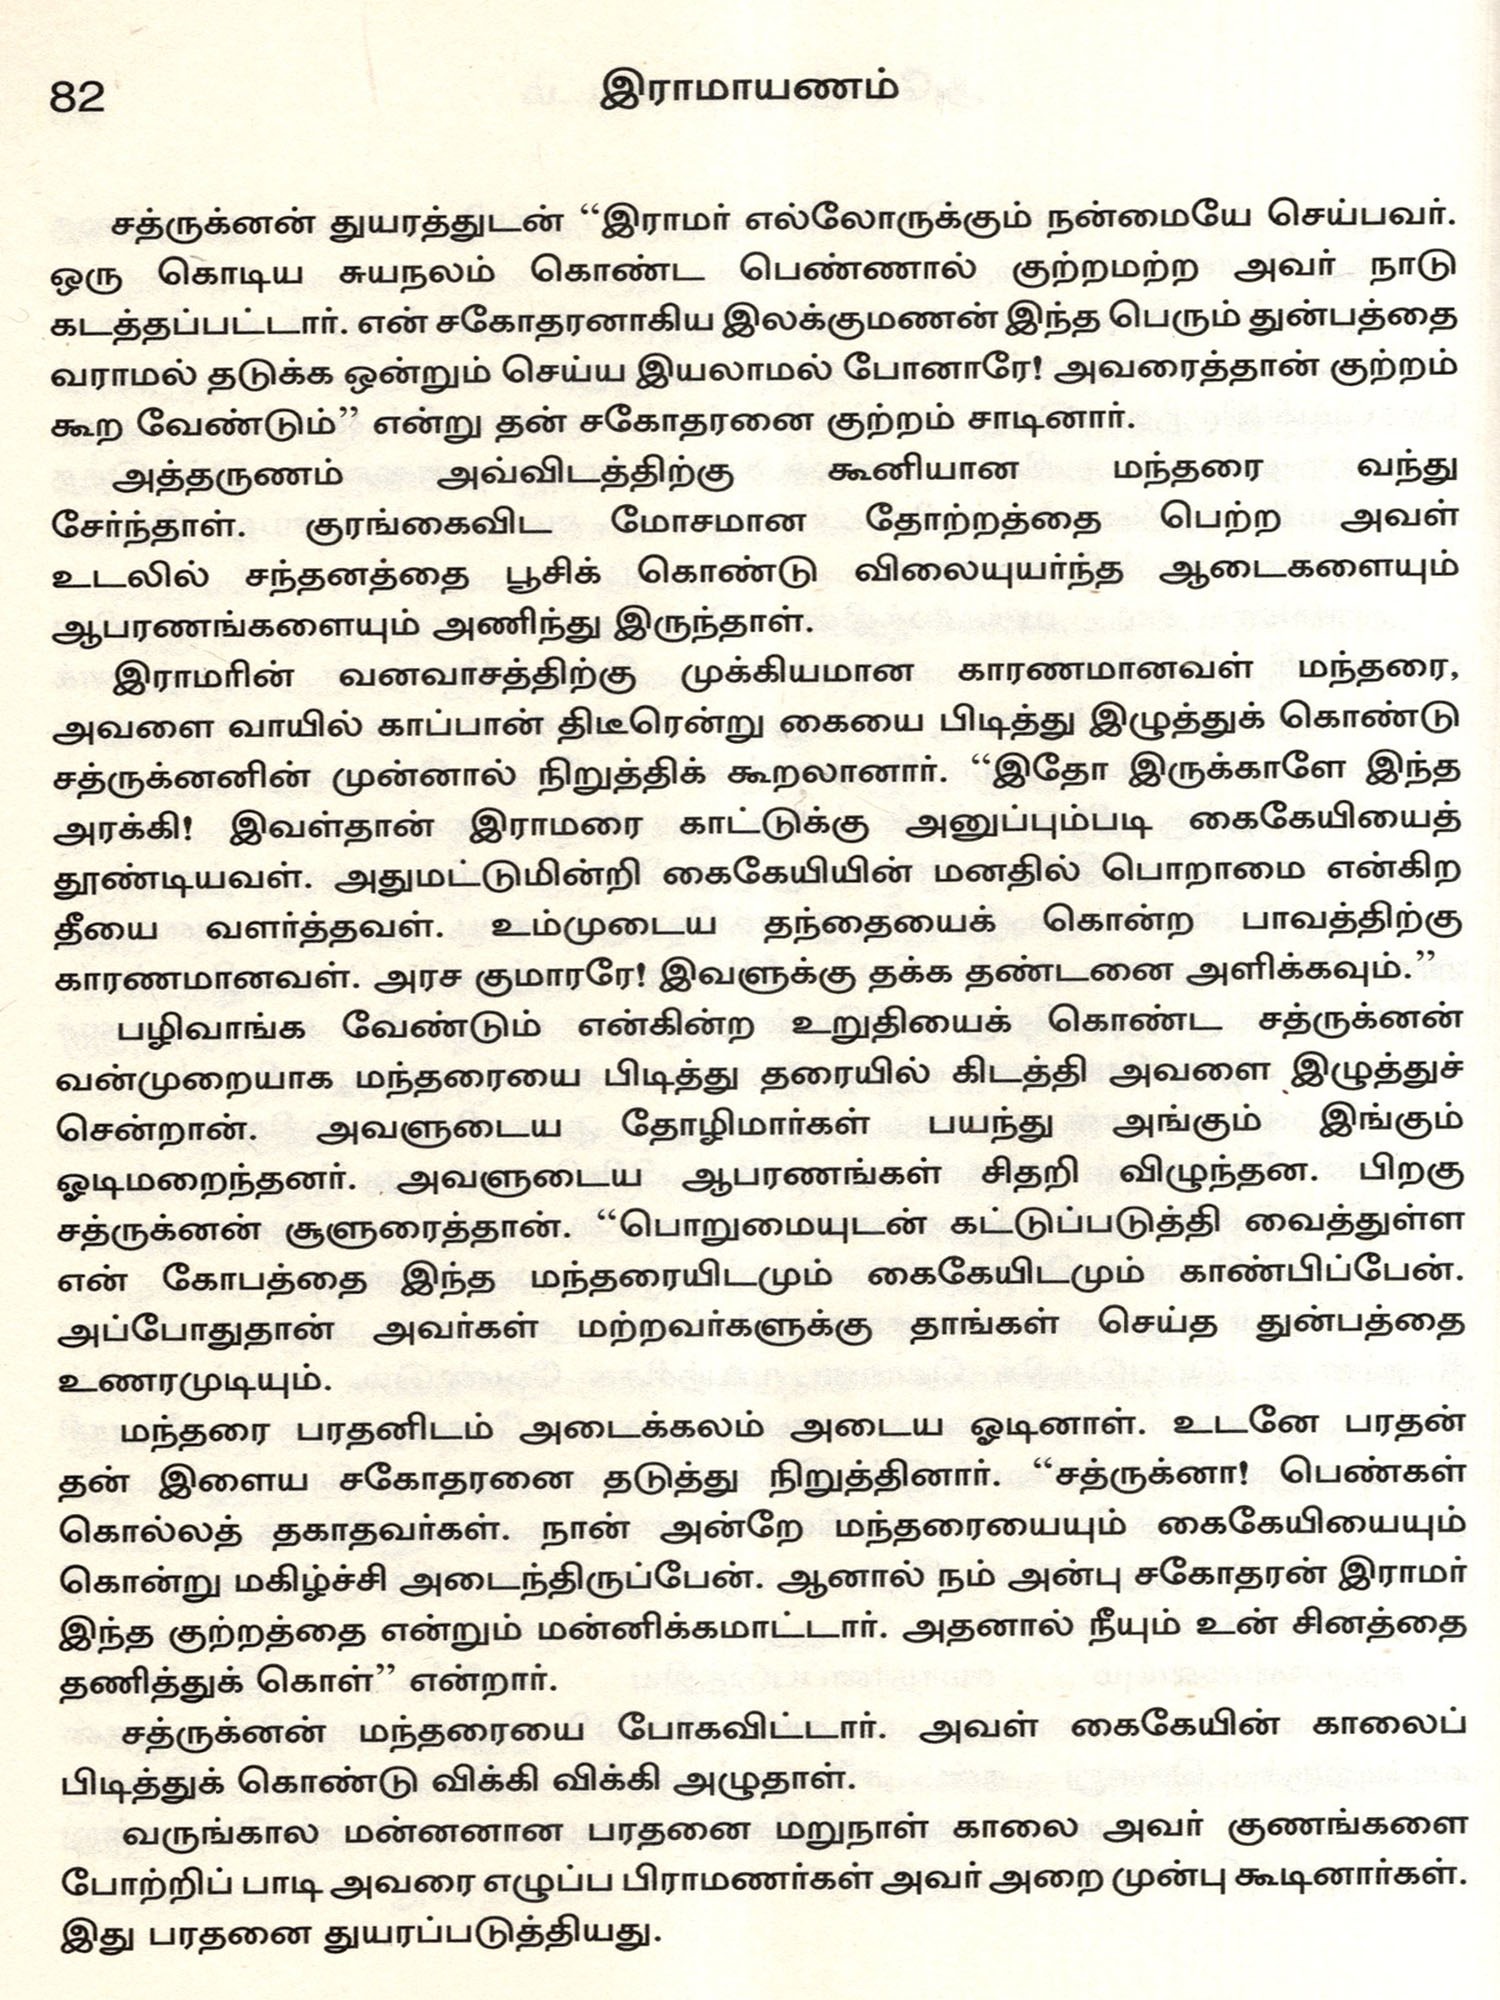 82
இராமாயணம்
சத்ருக்னன் துயரத்துடன் “இராமர் எல்லோருக்கும் நன்மையே செய்பவர்.
ஒரு கொடிய சுயநலம் கொண்ட பெண்ணால் குற்றமற்ற அவர் நாடு
கடத்தப்பட்டார். என் சகோதரனாகிய இலக்குமணன் இந்த பெரும் துன்பத்தை
வராமல் தடுக்க ஒன்றும் செய்ய இயலாமல் போனாரே! அவரைத்தான் குற்றம்
கூற வேண்டும்” என்று தன் சகோதரனை குற்றம் சாடினார்.
அத்தருணம் அவ்விடத்திற்கு கூனியான மந்தரை வந்து
சேர்ந்தாள். குரங்கைவிட மோசமான தோற்றத்தை பெற்ற அவள்
உடலில் சந்தனத்தை பூசிக் கொண்டு விலையுயர்ந்த ஆடைகளையும்
ஆபரணங்களையும் அணிந்து இருந்தாள்.
இராமரின் வனவாசத்திற்கு முக்கியமான காரணமானவள் மந்தரை,
அவளை வாயில் காப்பான் திடீரென்று கையை பிடித்து இழுத்துக் கொண்டு
சத்ருக்னனின் முன்னால் நிறுத்திக் கூறலானார். “இதோ இருக்காளே இந்த
அரக்கி! இவள்தான் இராமரை காட்டுக்கு அனுப்பும்படி கைகேயியைத்
தூண்டியவள். அதுமட்டுமின்றி கைகேயியின் மனதில் பொறாமை என்கிற
தீயை வளர்த்தவள். உம்முடைய தந்தையைக் கொன்ற பாவத்திற்கு
காரணமானவள். அரச குமாரரே! இவளுக்கு தக்க தண்டனை அளிக்கவும்.”
பழிவாங்க வேண்டும் என்கின்ற உறுதியைக் கொண்ட சத்ருக்னன்
வன்முறையாக மந்தரையை பிடித்து தரையில் கிடத்தி அவளை இழுத்துச்
சென்றான். அவளுடைய தோழிமார்கள் பயந்து அங்கும் இங்கும்
ஓடிமறைந்தனர். அவளுடைய ஆபரணங்கள் சிதறி விழுந்தன. பிறகு
சத்ருக்னன் சூளுரைத்தான். “பொறுமையுடன் கட்டுப்படுத்தி வைத்துள்ள
என் கோபத்தை இந்த மந்தரையிடமும் கைகேயிடமும் காண்பிப்பேன்.
அப்போதுதான் அவர்கள் மற்றவர்களுக்கு தாங்கள் செய்த துன்பத்தை
உணரமுடியும்.
மந்தரை பரதனிடம் அடைக்கலம் அடைய ஓடினாள். உடனே பரதன்
தன் இளைய சகோதரனை தடுத்து நிறுத்தினார். “சத்ருக்னா! பெண்கள்
கொல்லத் தகாதவர்கள். நான் அன்றே மந்தரையையும் கைகேயியையும்
கொன்று மகிழ்ச்சி அடைந்திருப்பேன். ஆனால் நம் அன்பு சகோதரன் இராமர்
இந்த குற்றத்தை என்றும் மன்னிக்கமாட்டார். அதனால் நீயும் உன் சினத்தை
தணித்துக் கொள்” என்றார்.
சத்ருக்னன் மந்தரையை போகவிட்டார். அவள் கைகேயின் காலைப்
பிடித்துக் கொண்டு விக்கி விக்கி அழுதாள்.
வருங்கால மன்னனான பரதனை மறுநாள் காலை அவர் குணங்களை
போற்றிப் பாடி அவரை எழுப்ப பிராமணர்கள் அவர் அறை முன்பு கூடினார்கள்.
இது பரதனை துயரப்படுத்தியது.